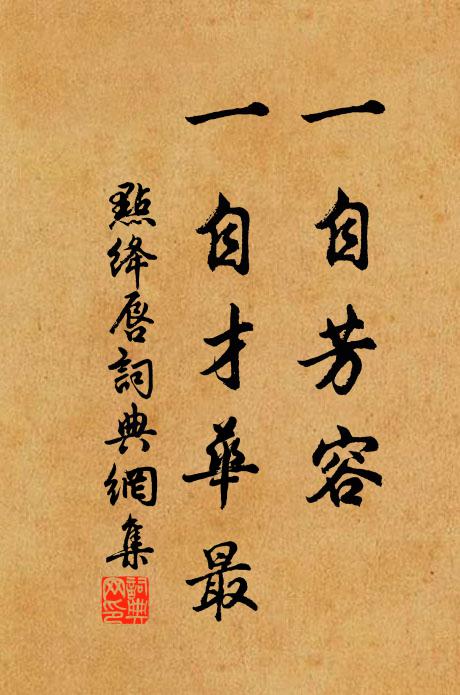 一自芳容
一自才華最
點絳唇詞典網集
詞典网印